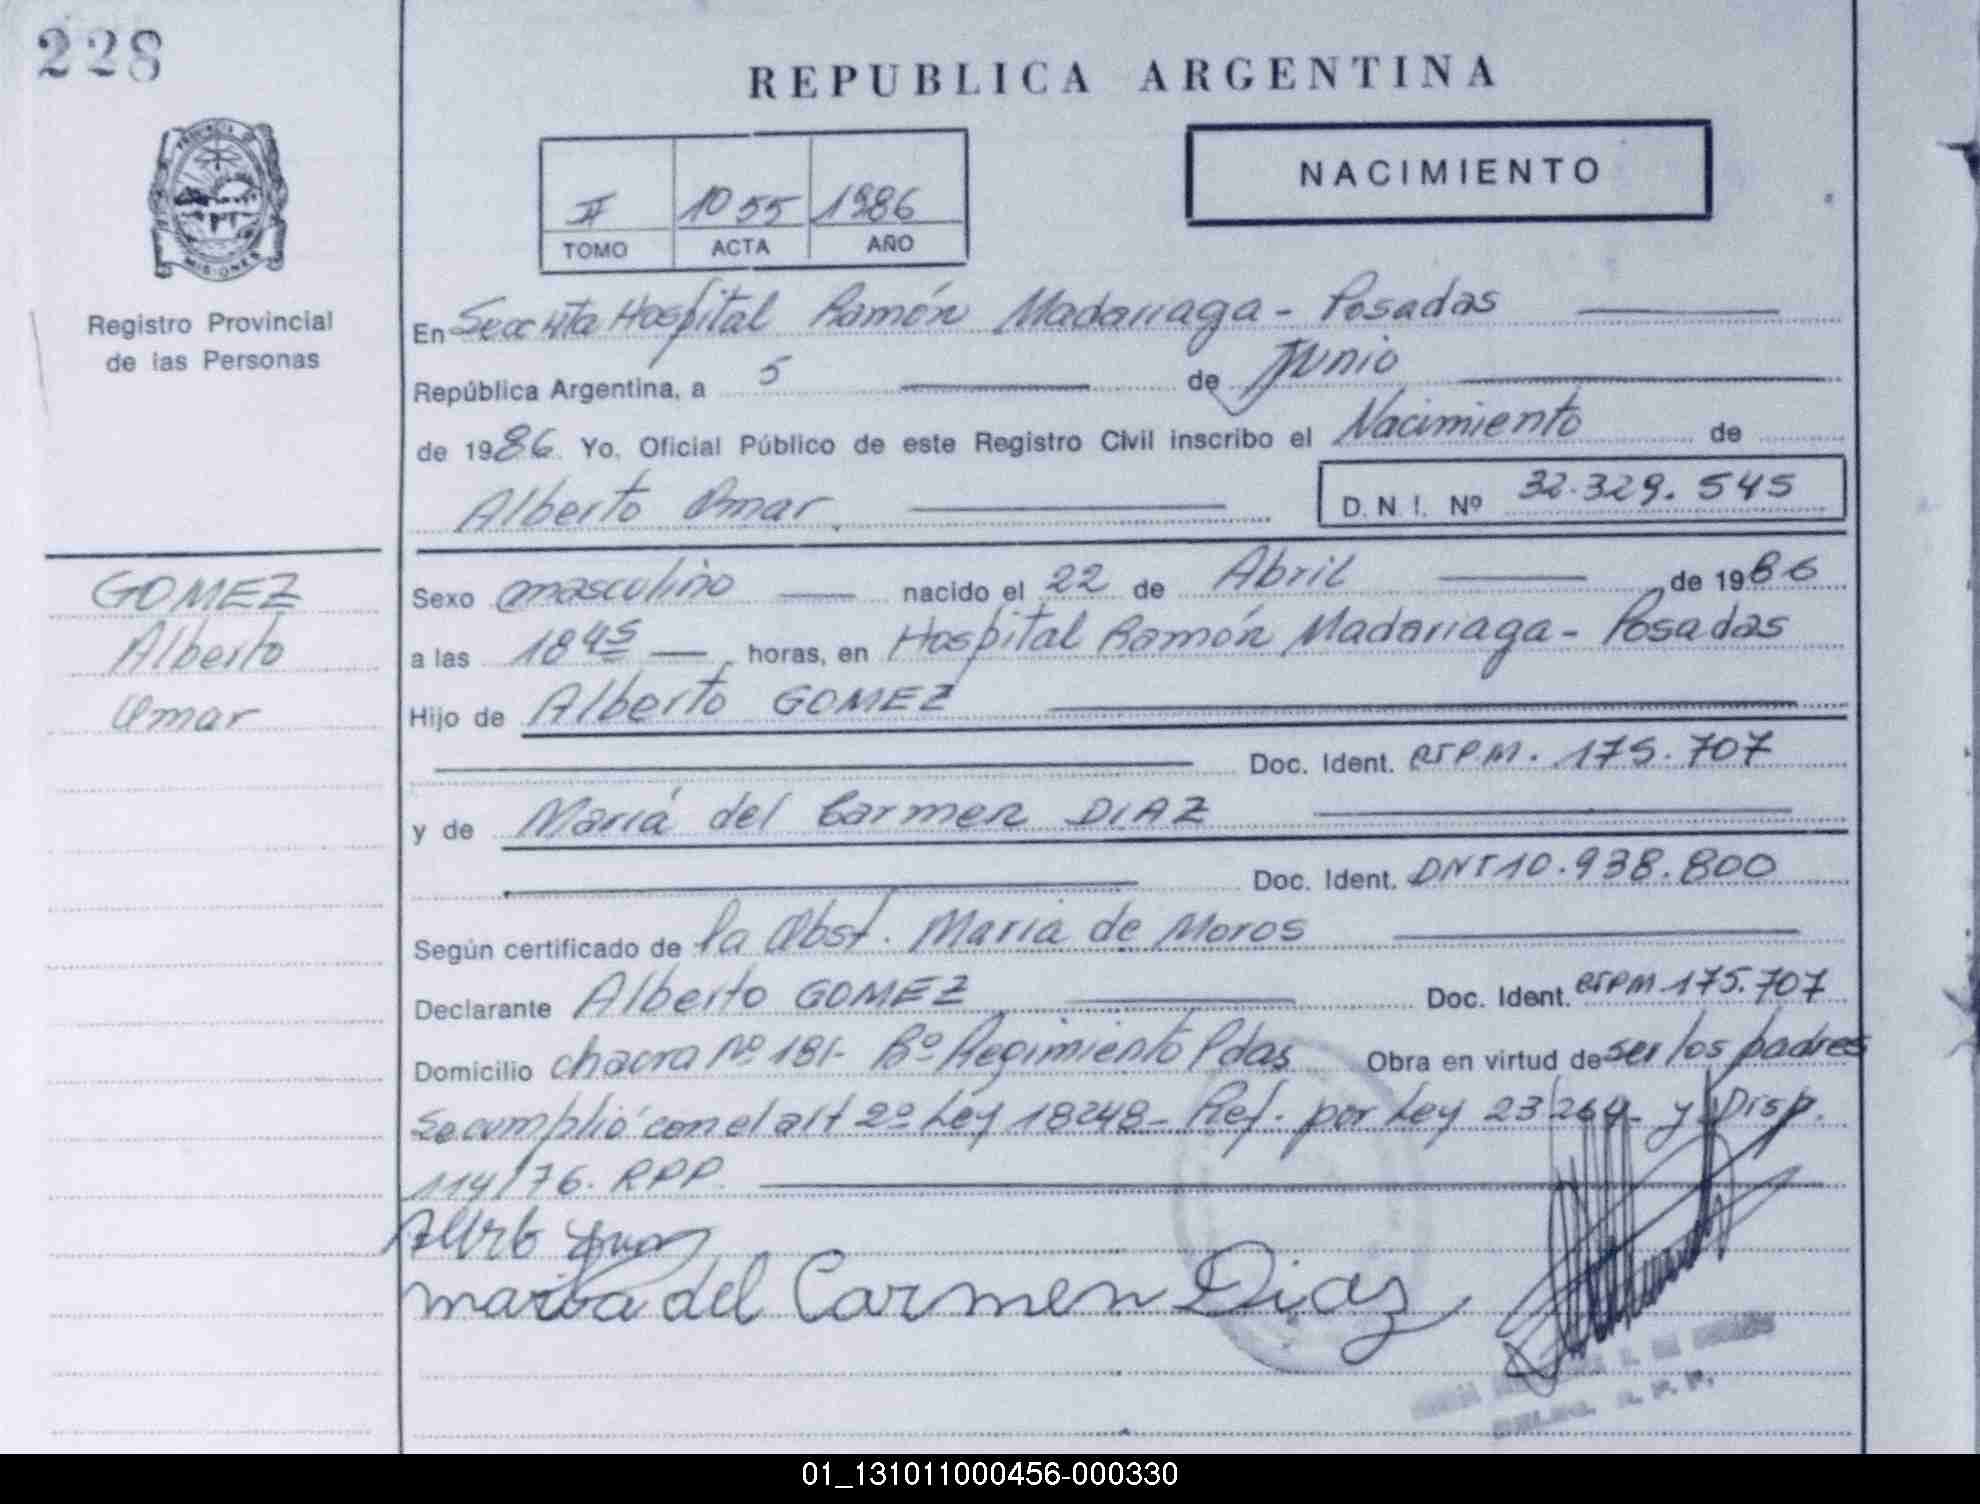 228
REPUBLICA ARGENTINA
NACIMIENTO
II 1055 1986
TOMO ACTA AÑO
PROVINCIA DE
MISIONES
Registro Provincial
de las Personas
En Secc 4ta Hospital Ramón Madariaga - Posadas
República Argentina, a 5 de Junio
de 1986. Yo, Oficial Público de este Registro Civil inscribo el Nacimiento de
Alberto Omar D. N. I. Nº 32.329.545
GOMEZ
Alberto
Omar
Sexo masculino nacido el 22 de Abril de 1986
a las 18 45 horas, en Hospital Ramón Madariaga - Posadas
Hijo de Alberto GOMEZ
Doc. Ident. CIPM. 175.707
y de Mariá del Carmen DIAZ
Doc. Ident. DNI 10.938.800
Según certificado de la Obst. Maria de Moros
Declarante Alberto GOMEZ Doc. Ident. CIPM 175.707
Domicilio chacra Nº 181- Bº Regimiento Pdas Obra en virtud de ser los padres
Se cumplió con el art 2º Ley 18248- Ref. por Ley 23264- y Disp.
114/76. RPP.
maria del Carmen Diaz
R. P. P.
01_131011000456-000330